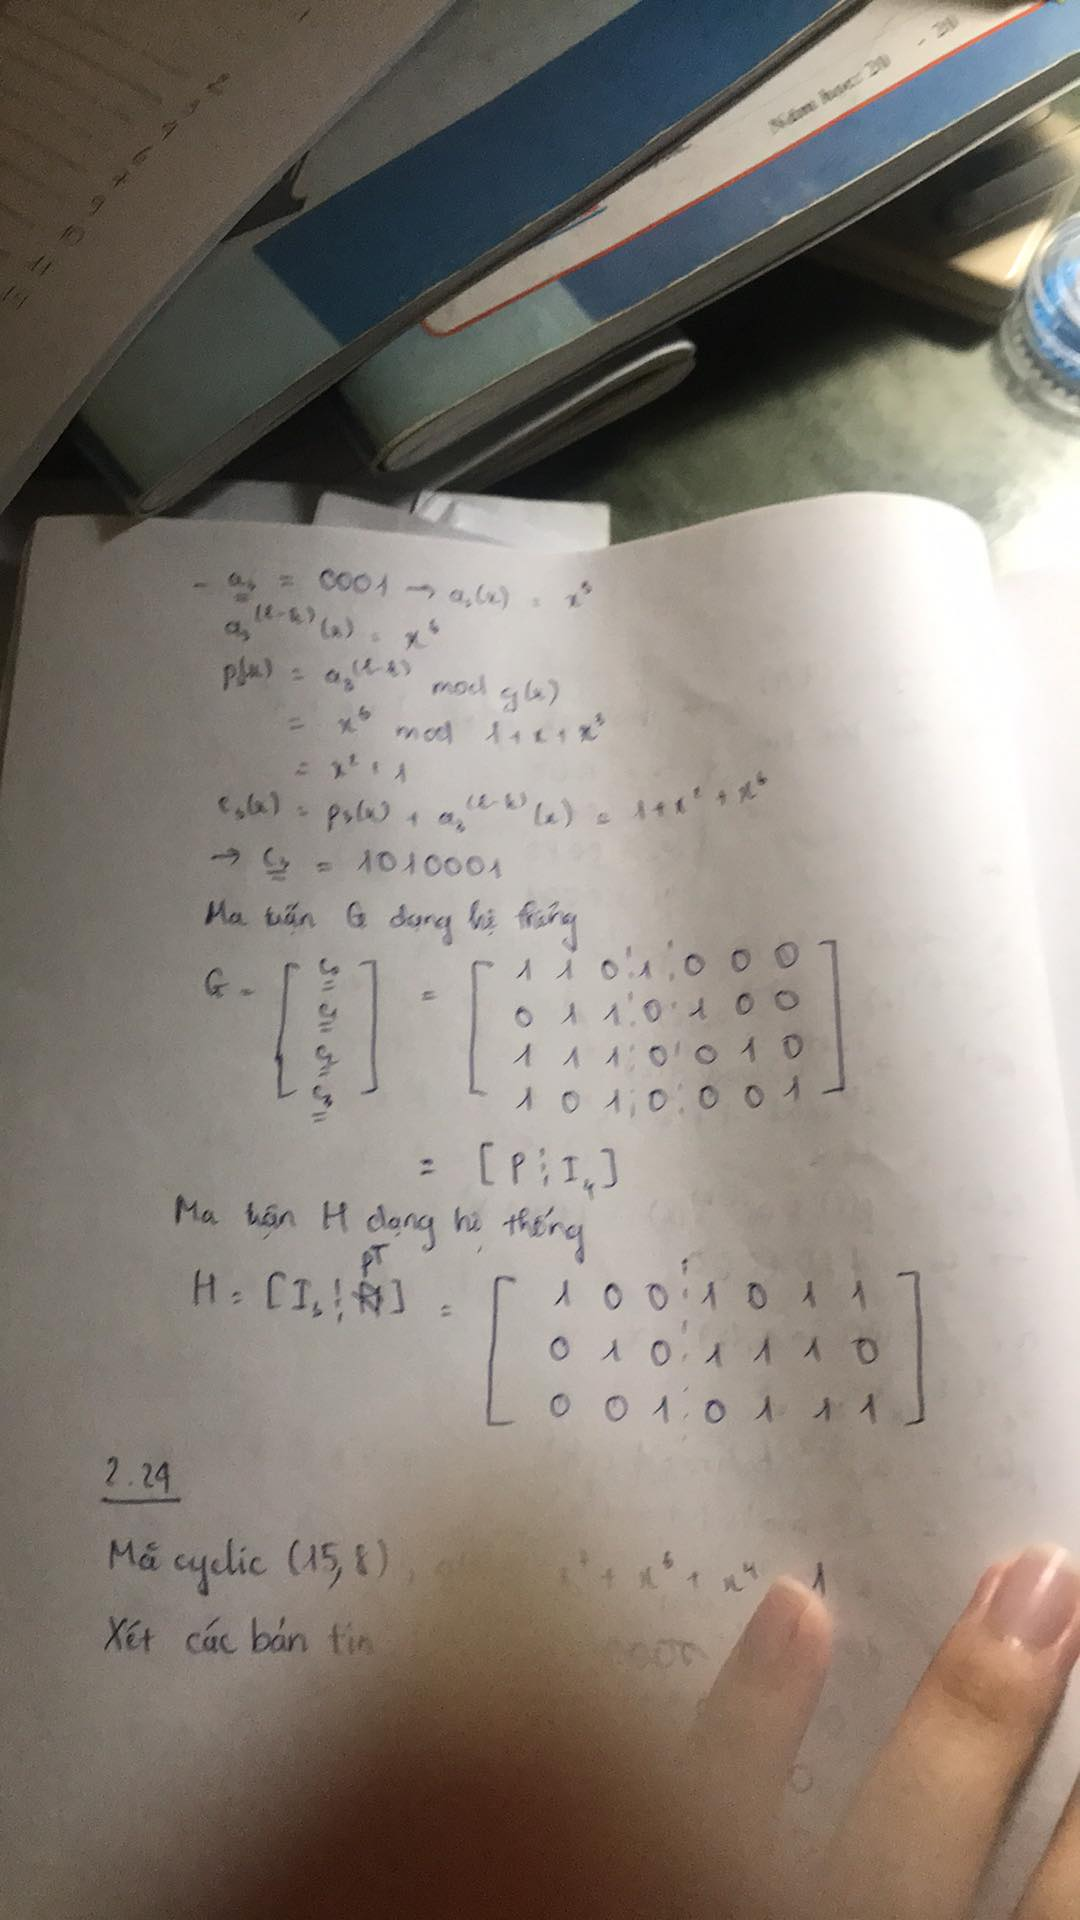 Năm học: 20 - 20
8
9
10
11
- a₃ = 0001 → a₃(x) = x³
a₃^(l-k)(x) = x⁶
p(x) = a₃^(l-k) mod g(x)
= x⁶ mod 1 + x + x³
= x² + 1
c₃(x) = p₃(x) + a₃^(l-k)(x) = 1 + x² + x⁶
→ c₃ = 1010001
Ma trận G dạng hệ thống
G = [ ] = [ 1 1 0 1 0 0 0
0 1 1 0 1 0 0
1 1 1 0 0 1 0
1 0 1 0 0 0 1 ]
= [P ⋮ I₄]
Ma trận H dạng hệ thống
H = [I₃ ⋮ Pᵀ] = [ 1 0 0 1 0 1 1
0 1 0 1 1 1 0
0 0 1 0 1 1 1 ]
2.24
Mã cyclic (15,8), + x⁶ + x⁴ 1
Xét các bản tin